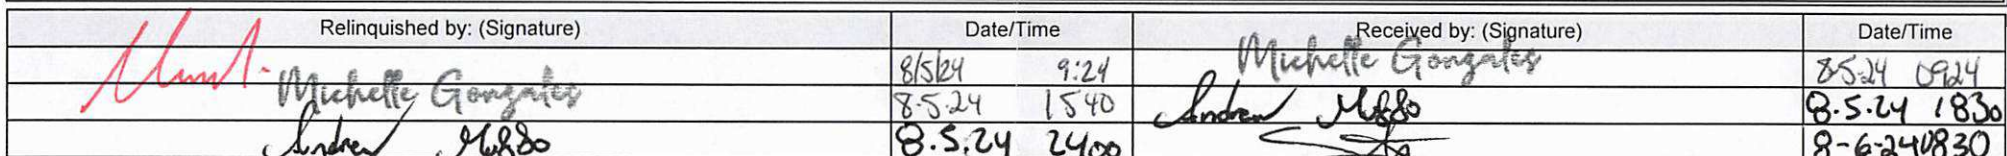 Relinquished by: (Signature) Date/Time Received by: (Signature) Date/Time
8/5/24 9:24 Michelle Gonzales 8-5-24 0924
Michelle Gonzales 8.5.24 1540 Andrew 8.5.24 1830
Andrew 8.5.24 2400 8-6-24 0830